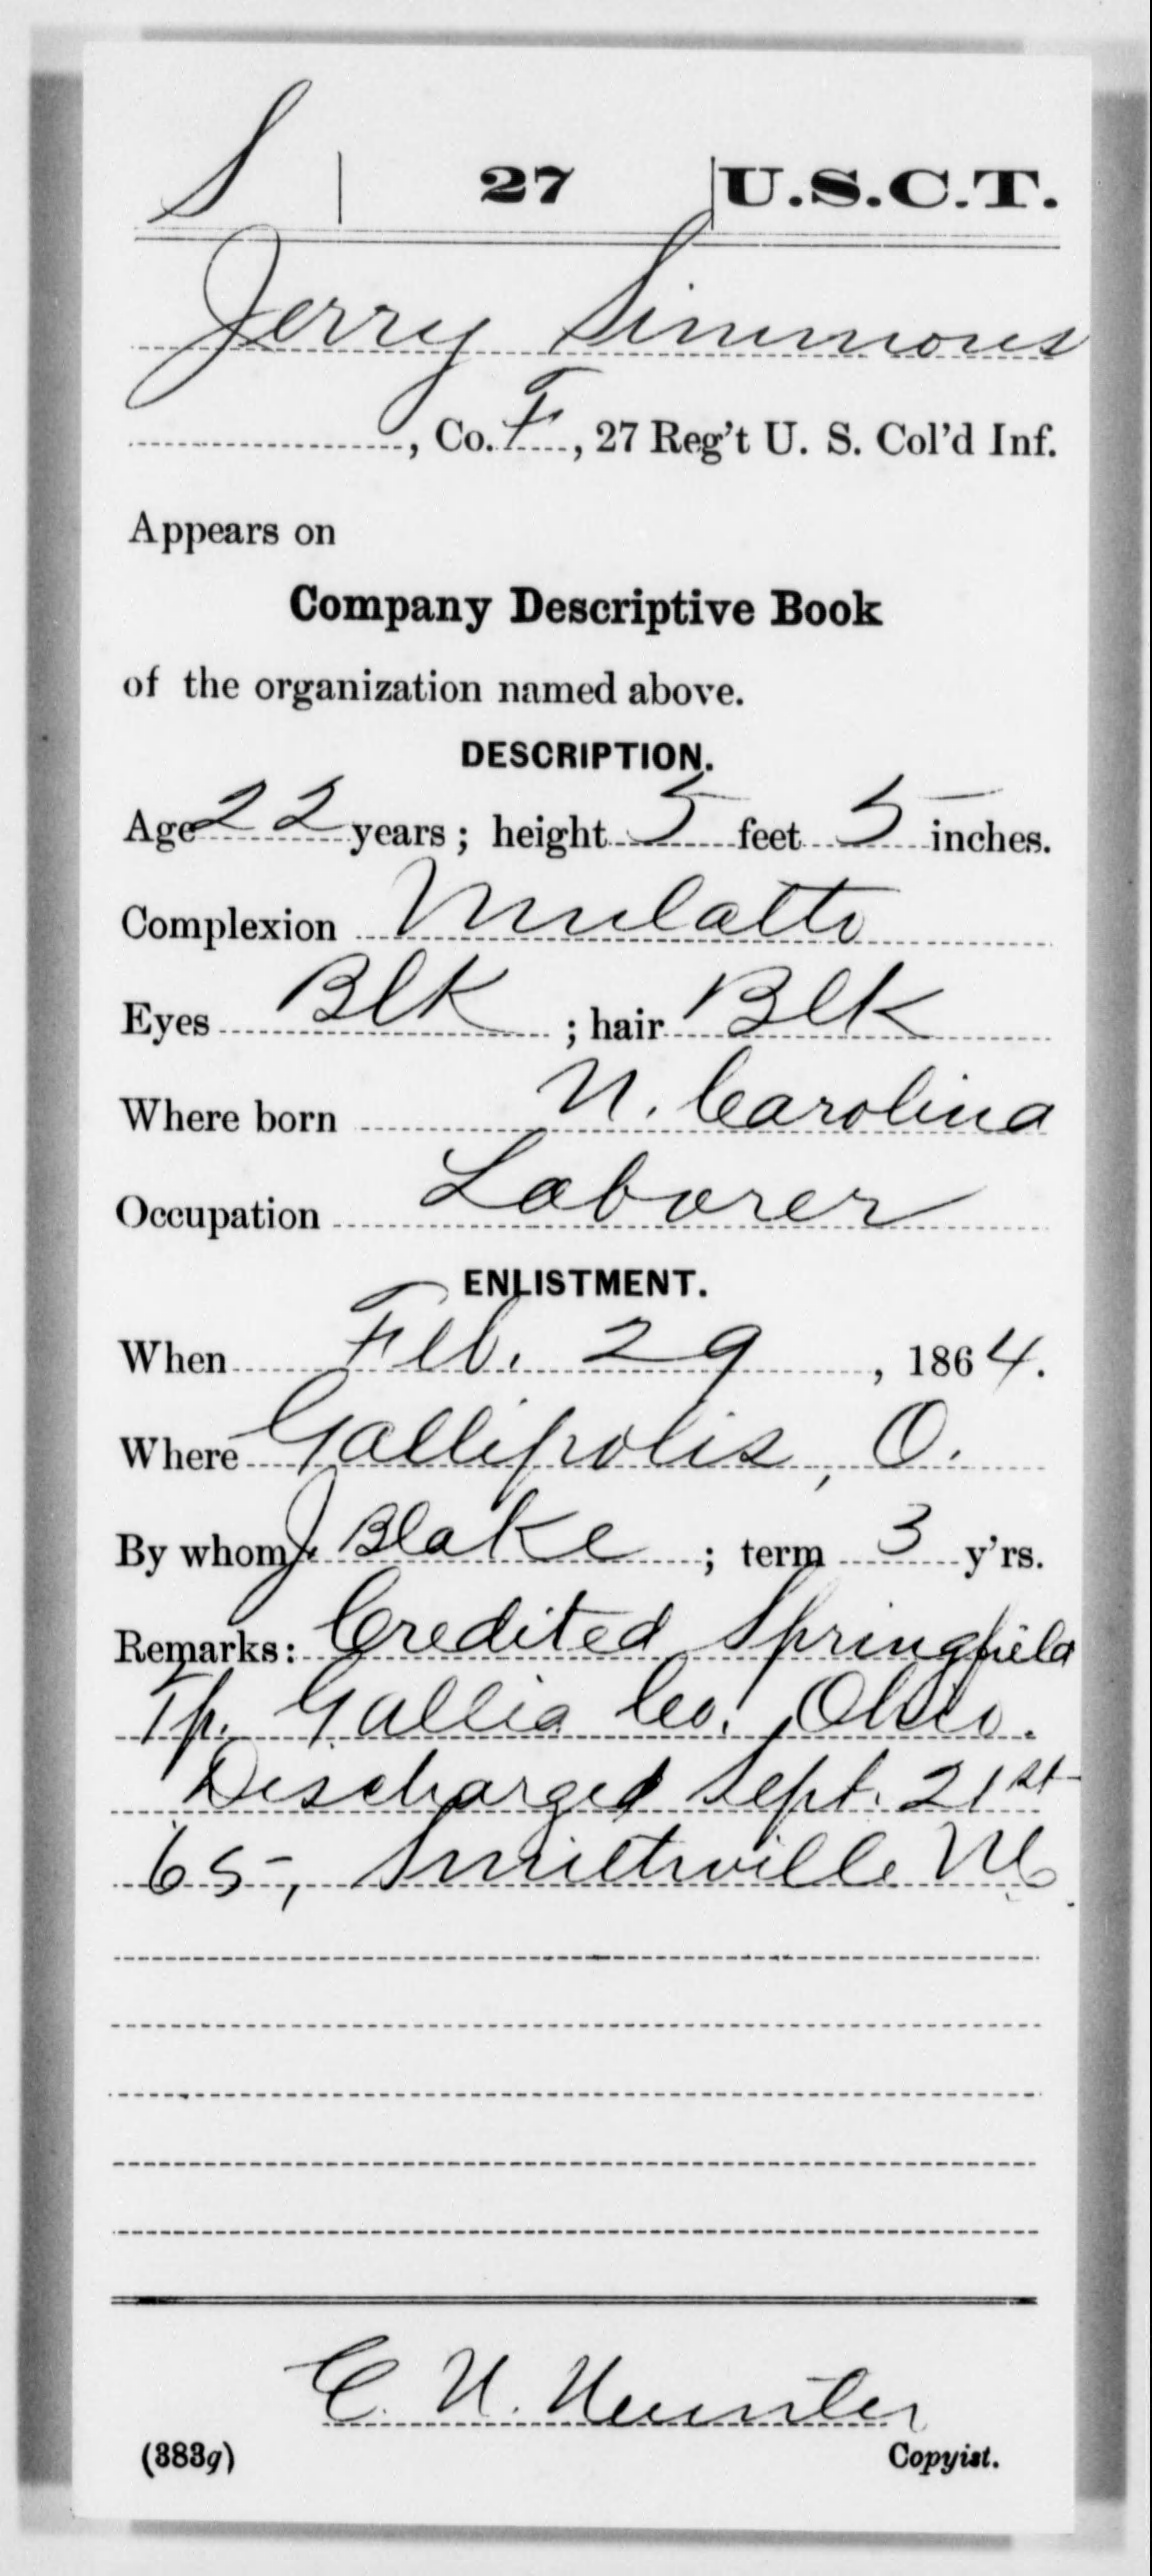 S | 27 | U.S.C.T.
Jerry Simmons
, Co. F, 27 Reg't U. S. Col'd Inf.
Appears on
Company Descriptive Book
of the organization named above.
DESCRIPTION.
Age 22 years; height 5 feet 5 inches.
Complexion Mulatto
Eyes Blk ; hair Blk
Where born N. Carolina
Occupation Laborer
ENLISTMENT.
When Feb. 29, 1864.
Where Gallipolis, O.
By whom J. Blake ; term 3 y'rs.
Remarks: Credited Springfield
Tp. Gallia Co. Ohio.
Discharged Sept. 21st
65, Smithville NC.
C. N.
(383g) Copyist.